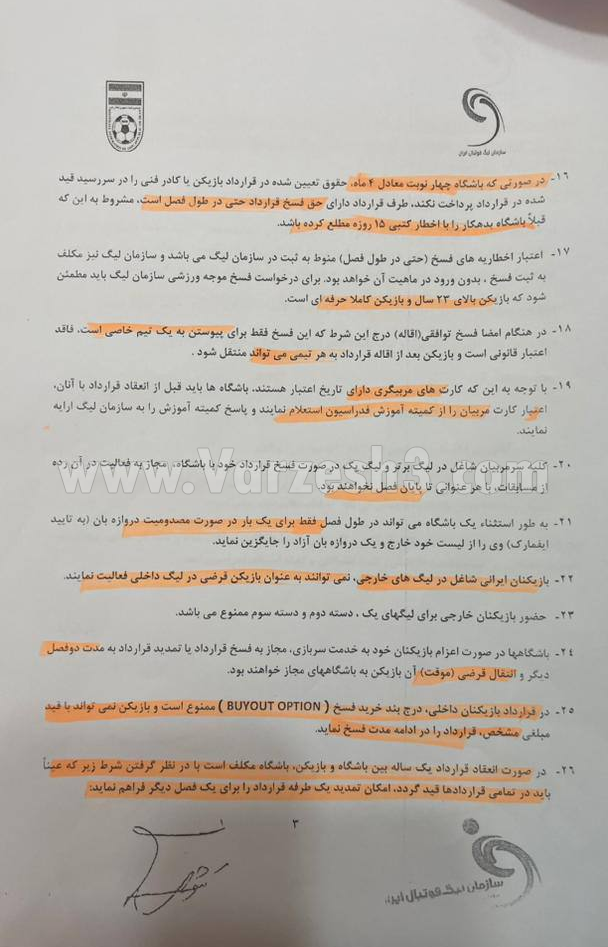 سازمان لیگ فوتبال ایران
۱۶- در صورتی که باشگاه چهار نوبت معادل ۴ ماه، حقوق تعیین شده در قرارداد بازیکن یا کادر فنی را در سررسید قید
شده در قرارداد پرداخت نکند، طرف قرارداد دارای حق فسخ قرارداد حتی در طول فصل است، مشروط به این که
قبلاً باشگاه بدهکار را با اخطار کتبی ۱۵ روزه مطلع کرده باشد.
۱۷- اعتبار اخطاریه های فسخ (حتی در طول فصل) منوط به ثبت در سازمان لیگ می باشد و سازمان لیگ نیز مکلف
به ثبت فسخ ، بدون ورود در ماهیت آن خواهد بود. برای درخواست فسخ موجه ورزشی سازمان لیگ باید مطمئن
شود که بازیکن بالای ۲۳ سال و بازیکن کاملا حرفه ای است.
۱۸- در هنگام امضا فسخ توافقی(اقاله) درج این شرط که این فسخ فقط برای پیوستن به یک تیم خاصی است، فاقد
اعتبار قانونی است و بازیکن بعد از اقاله قرارداد به هر تیمی می تواند منتقل شود .
۱۹- با توجه به این که کارت های مربیگری دارای تاریخ اعتبار هستند، باشگاه ها باید قبل از انعقاد قرارداد با آنان،
اعتبار کارت مربیان را از کمیته آموزش فدراسیون استعلام نمایند و پاسخ کمیته آموزش را به سازمان لیگ ارایه
نمایند.
۲۰- کلیه سرمربیان شاغل در لیگ برتر و لیگ یک در صورت فسخ قرارداد خود با باشگاه، مجاز به فعالیت در آن رده
از مسابقات، با هر عنوانی تا پایان فصل نخواهند بود.
www.Varzesh3.com
۲۱- به طور استثناء یک باشگاه می تواند در طول فصل فقط برای یک بار در صورت مصدومیت دروازه بان (به تایید
ایفمارک) وی را از لیست خود خارج و یک دروازه بان آزاد را جایگزین نماید.
۲۲- بازیکنان ایرانی شاغل در لیگ های خارجی، نمی توانند به عنوان بازیکن قرضی در لیگ داخلی فعالیت نمایند.
۲۳- حضور بازیکنان خارجی برای لیگهای یک ، دسته دوم و دسته سوم ممنوع می باشد.
۲۴- باشگاهها در صورت اعزام بازیکنان خود به خدمت سربازی، مجاز به فسخ قرارداد یا تمدید قرارداد به مدت دوفصل
دیگر و انتقال قرضی (موقت) آن بازیکن به باشگاههای مجاز خواهند بود.
۲۵- در قرارداد بازیکنان داخلی، درج بند خرید فسخ ( BUYOUT OPTION ) ممنوع است و بازیکن نمی تواند با قید
مبلغی مشخص، قرارداد را در ادامه مدت فسخ نماید.
۲۶- در صورت انعقاد قرارداد یک ساله بین باشگاه و بازیکن، باشگاه مکلف است با در نظر گرفتن شرط زیر که عیناً
باید در تمامی قراردادها قید گردد، امکان تمدید یک طرفه قرارداد را برای یک فصل دیگر فراهم نماید:
۳
سازمان لیگ فوتبال ایران